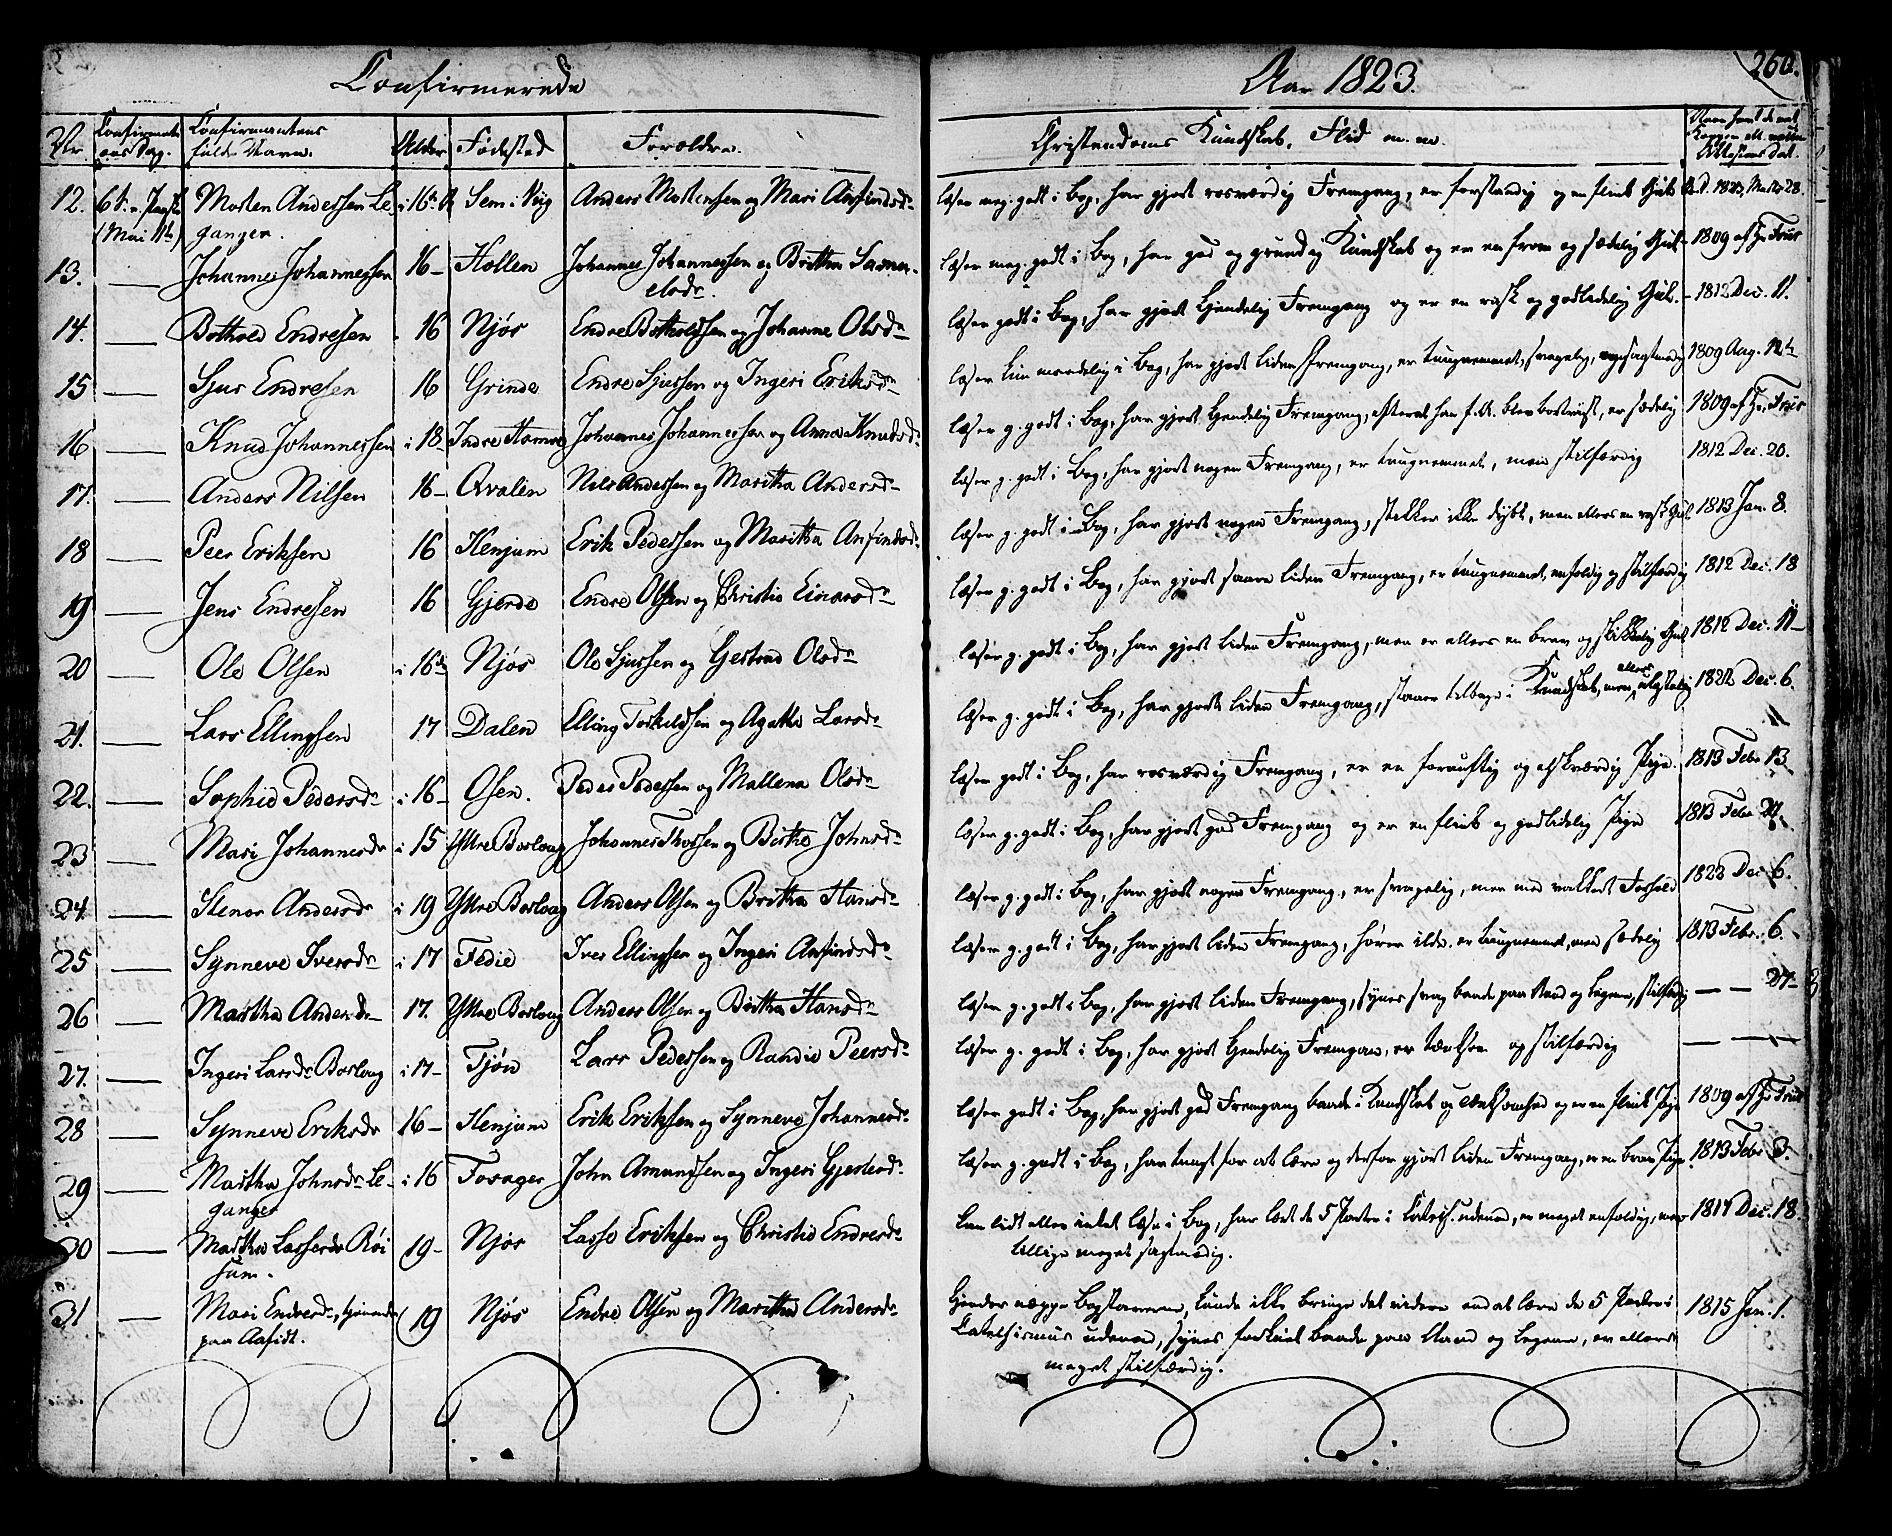 Confirmerede
Aar 1823.
260.
Nr. Confirmationsdag. Confirmantens fulde Navn. Alder Fødested Forældre. Christendoms Kundskab, Flid m. m.
12. 6te S. e. Paaske (Mai 11te) Morten Andersen Leganger. i 16de Sem i Vig Anders Mortensen og Mari Anfindsdr læser meg. godt i Bog, har gjort rosværdig Fremgang, er forstandig og en flink Gut 1823, Marts 28.
13. — Johannes Johannessen 16 – Hollen Johannes Johannessen og Brittha læser meg. godt i Bog, har god og grundig Kundskab og er en from og sædelig Gut – 1809 af Hr. Friis
14. — Botholv Endresen 16 Njøs Endre Botholdssen og Johanne Olsdr læser godt i Bog, har gjort kjendelig Fremgang og er en rask og godlidelig Gut. – 1812 Dec. 11.
15 — Sjur Endresen 16 Grinde Endre Sjursen og Ingeri Eriksdr læser kun maadelig i Bog, har gjort liden Fremgang, er tungnemmet, svagelig, 1809 Aug. 12te
16 — Knud Johannessen i 18 Indre Hamre Johannes Johannessen og Anna Knudsdr læser g. godt i Bog, har gjort kjendelig Fremgang, efterat han f. A. blev bortviist, er sædelig 1809 af Hr. Friis
17. — Anders Nilsen 16 – Qvalen Nils Andersen og Maritha Andersdr læser g. godt i Bog, har gjort nogen Fremgang, er tungnemmet, men stilfærdig 1812 Dec. 20.
18 — Peer Eriksen 16 Henjum Erik Pedersen og Maritha Anfindsdr læser g. godt i Bog, har gjort nogen Fremgang, stikker ikke dybt, men ellers en rask Gut 1813 Jan. 8.
19 — Jens Endresen 16 Gjerde Endre Olsen og Christie Einarsdr læser g. godt i Bog, har gjort saare liden Fremgang, er tungnemmet, enfoldig og stilfærdig 1812 Dec. 18
20 — Ole Olsen i 16de Njøs Ole Sjursen og Gertrud Olsdr læser g. godt i Bog, har gjort liden Fremgang, men er ellers en brav og skikkelig Gut 1812 Dec. 11 –
21. — Lars Ellingsen 17 Dalen Elling Torkildssen og Agatha Larsdr læser g. godt i Bog, har gjort liden Fremgang, staaer tilbage i Kundskab, men ellers 1822 Dec. 6.
22. — Sophie Pedersdr i 16 – Osen. Peder Pedersen og Mallena Olsdr læser godt i Bog, har rosværdig Fremgang, er en fornuftig og elskværdig Pige. 1813 Febr. 13.
23 — Mari Johannesdr i 15 Yttre Borloug Johannes Thorsen og Birthe Johnsdr læser g. godt i Bog, har gjort god Fremgang og er en flink og godlidelig Pige 1813 Febr.
24. — Stenor Andersdr i 19 Yttre Borloug Anders Olsen og Brittha Hansdr læser g. godt i Bog, har gjort nogen Fremgang, er svagelig, men med vakkert Forhold 1823 Dec. 6.
25 — Synneve Iversdr i 17 Fedie Iver Ellingsen og Ingeri Anfindsdr læser g. godt i Bog, har gjort liden Fremgang, hører ilde, er tungnemmet, men sædelig 1813 Febr. 6.
26 — Martha Andersdr 17. Yttre Borloug Anders Olsen og Brittha Hansdr læser g. godt i Bog, har gjort liden Fremgang, synes svag baade paa Aand og Legeme, stilfærdig — — 27 –
27. — Ingeri Larsdr Borloug i 17 – Tjøn Lars Pedersen og Randie Peersdr læser g. godt i Bog, har gjort kjendelig Fremgang, er tænksom og stilfærdig — — —
28 — Synneve Eriksdr 16 – Henjum Erik Eriksen og Synneve Johannesdr læser godt i Bog, har gjort god Fremgang baade i Kundskab og Tænksomhed og er en flink Pige 1809 af Hr. Friis
29 — Martha Johnsdr Leganger i 16 Fosager John Amundsen og Ingeri læser g. godt i Bog, har tungt for at lære og derfor gjort liden Fremgang, er en brav Pige. 1813 Febr. 3.
30 — Martha Lassesdr Røisum. 19 – Njøs Lasse Eriksen og Christie Endresdr kan lidt eller intet læse i Bog, har lært de 5 Parter i Catech. udenad, er meget enfoldig, men
tillige meget sagtmodig. 1817 Dec. 18.
31 — Mari Endresdr, tjenende paa Aafedt. 19 Njøs Endre Olsen og Maritha Andersdr kjender neppe Bogstaverne, kunde ikke bringe det videre end at lære de 5 Parter i
Catechismus udenad, synes forkuet baade paa Aand og Legeme, er ellers
meget stilfærdig. 1815 Jan. 1.